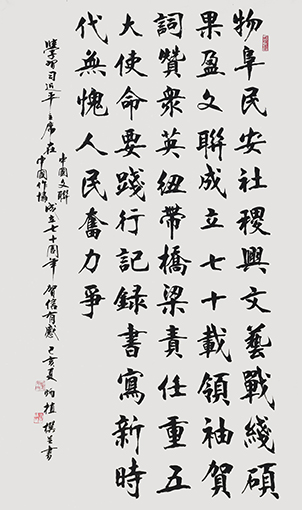 物阜民安社稷興文藝戰綫碩
果盈文聯成立七十載領袖賀
詞贊衆英紐帶橋梁責任重五
大使命要踐行記録書寫新時
代無愧人民奮力爭
學習习近平主席在
中国文联
中国作協
成立七十周年賀信有感己亥夏炳植撰並書